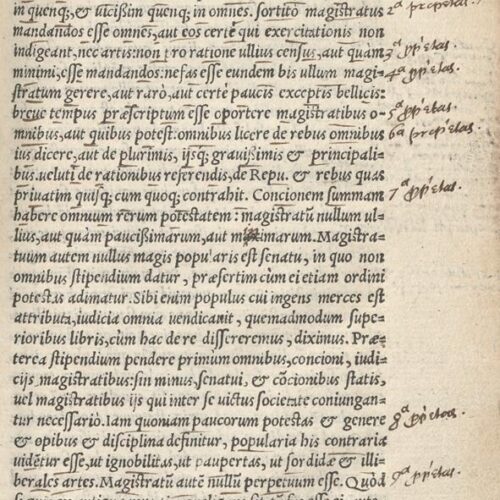 in quenq;, & vicißim quenq; in omnes. sortitò magistratus
mandandos esse omnes, aut eos certè qui exercitationis non
indigeant, nec artis: non pro ratione ullius census, aut quàm
minimi, esse mandandos: nefas esse eundem bis ullum magi
stratum gerere, aut rarò, aut certè paucis exceptis bellicis:
breve tempus præscriptum esse oportere magistratibus o-
mnibus, aut quibus potest. omnibus licere de rebus omnibus
ius dicere, aut de plurimis, ijsq; grauißimis & principali-
bus. veluti de rationibus referendis, de Repu. & rebus quas
privatim quisq; cum quoq; contrahit. Concionem summam
habere omnium rerum potestatem: magistratũ nullum ul-
lius, aut quàm paucißimarum, aut marum. Magistra-
tuum autem nullus magis popularis est senatu, in quo non
omnibus stipendium datur, præsertim cùm ei etiam ordini
potestas adimatur. Sibi enim populus cui ingens merces est
attributa, iudicia omnia vendicavit, quemadmodum supe-
rioribus libris, cùm hac de re dissereremus, diximus. Præ-
terea stipendium pendere primum omnibus, concioni, iudi-
cijs magistratibus: sin minus, senatui, & cõcionibus statis,
vel magistratibus ijs qui inter se victus societate coniungan-
tur necessario. Iam quoniam paucorum potestas & genere
& opibus & disciplina definitur, popularia his contraria
vidẽtur esse, ut ignobilitas, ut paupertas, ut sordidæ & illi-
berales artes. Magistratũ autẽ nullũ perpetuum esse. Quòd
2ª propetas.
3ª ppetas.
4ª ppetas.
5ª ppetas.
6ª propetas.
7ª ppetas.
8ª ppetas.
9ª ppetas.